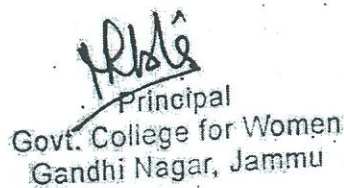 Principal
Govt. College for Women
Gandhi Nagar, Jammu